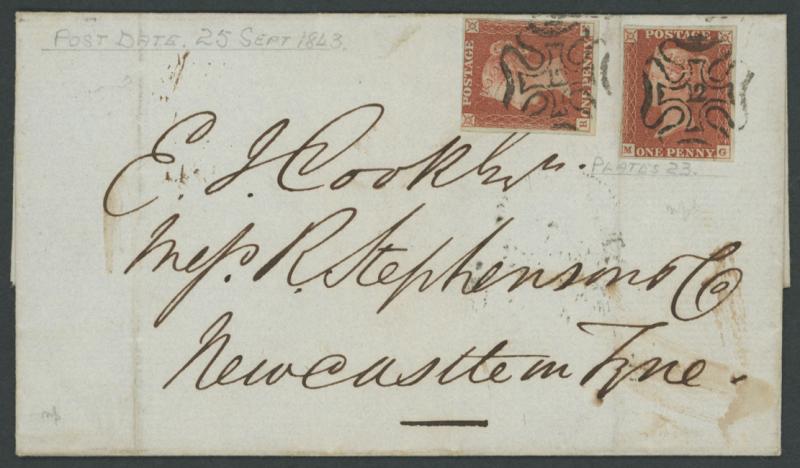 POST DATE. 25 SEPT 1843.
POSTAGE
ONE PENNY
R
POSTAGE
12
M ONE PENNY G
PLATES 23.
E. J. Cook Esqr.
Messrs. R. Stephenson & Co
Newcastle on Tyne.